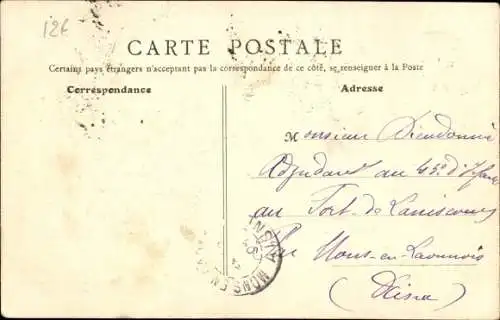 12€
CARTE POSTALE
Certains pays étrangers n'acceptant pas la correspondance de ce côté, se renseigner à la Poste
Correspondance
Adresse
Monsieur Dieudonné
Adjudant au 45e d'Inf
au Fort de Laniscourt
Par Mons-en-Laonnois
(Aisne)
MONS-EN-L
AISNE